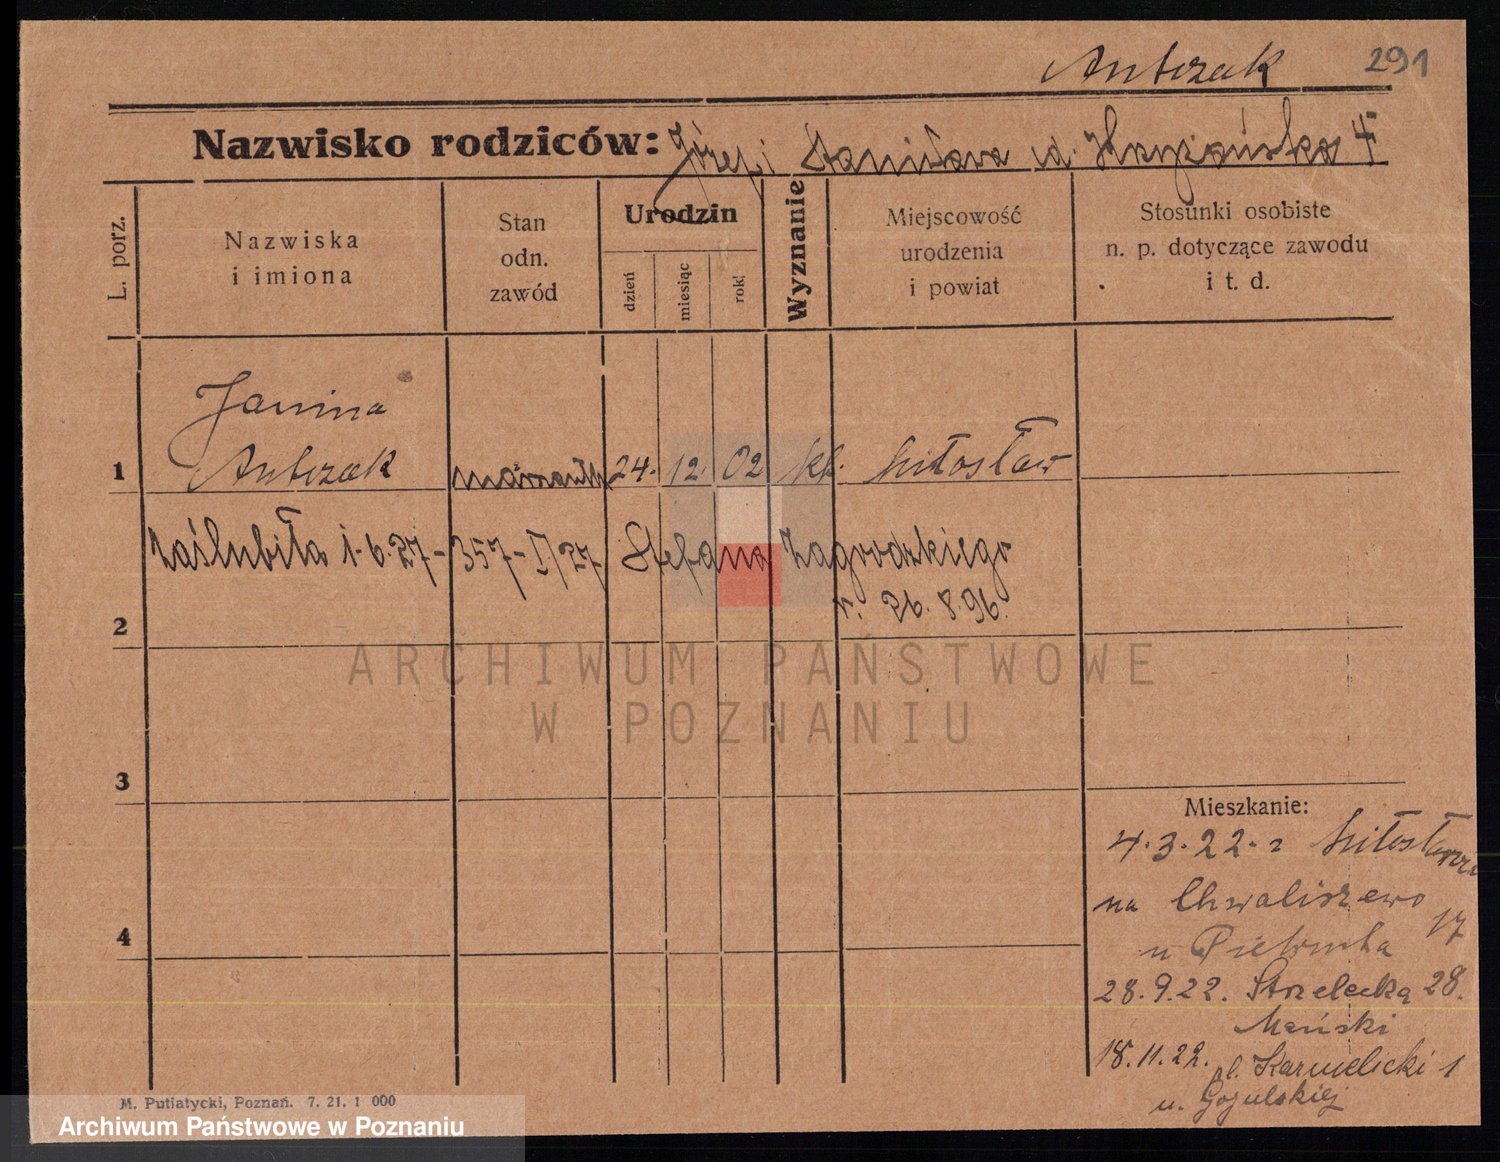 Antczak 291
Nazwisko rodziców: Józef i Stanisława
L. porz.
Nazwiska
i imiona
Stan
odn.
zawód
Urodzin
dzień
miesiąc
rok
Wyznanie
Miejscowość
urodzenia
i powiat
Stosunki osobiste
n. p. dotyczące zawodu
i t. d.
Janina
1 Antczak 24. 12. 02 kt. Miłosław
Zaślubiła 1.6.27 - 357-I/27 Stefana Zagrodzkiego
r. 26.8.96.
2
ARCHIWUM PAŃSTWOWE
W POZNANIU
3
Mieszkanie:
4.3.22. z
na Chwaliszewo 17
4 u Pietrucha
28.9.22. Strzelecka 28.
Mański
18.11.22. pl. Karmelicki 1
u.
M. Putiatycki, Poznań. 7. 21. 1 000
Archiwum Państwowe w Poznaniu